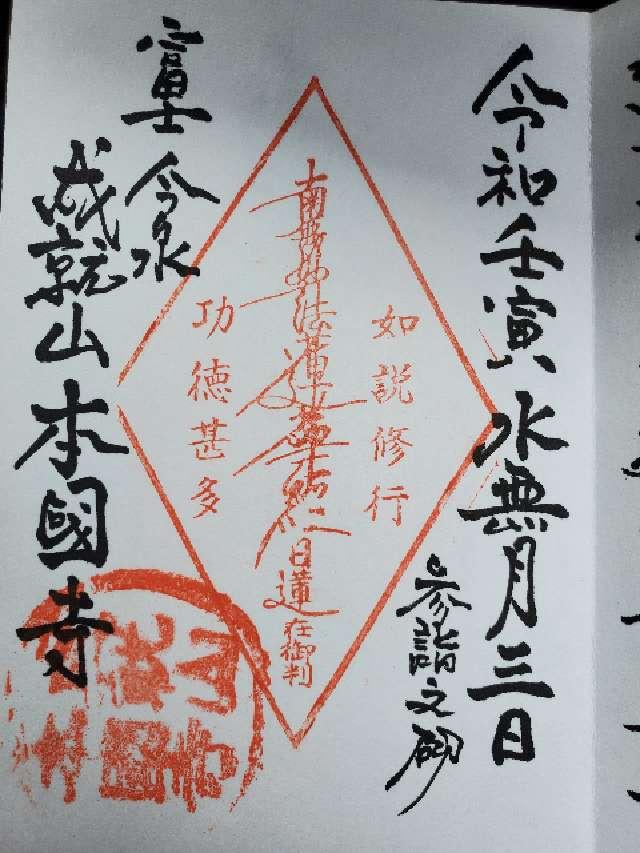 令和壬寅水無月三日
参詣之砌
如説修行
南無妙法蓮華経
日蓮
在御判
功德甚多
富士今泉
成就山本國寺